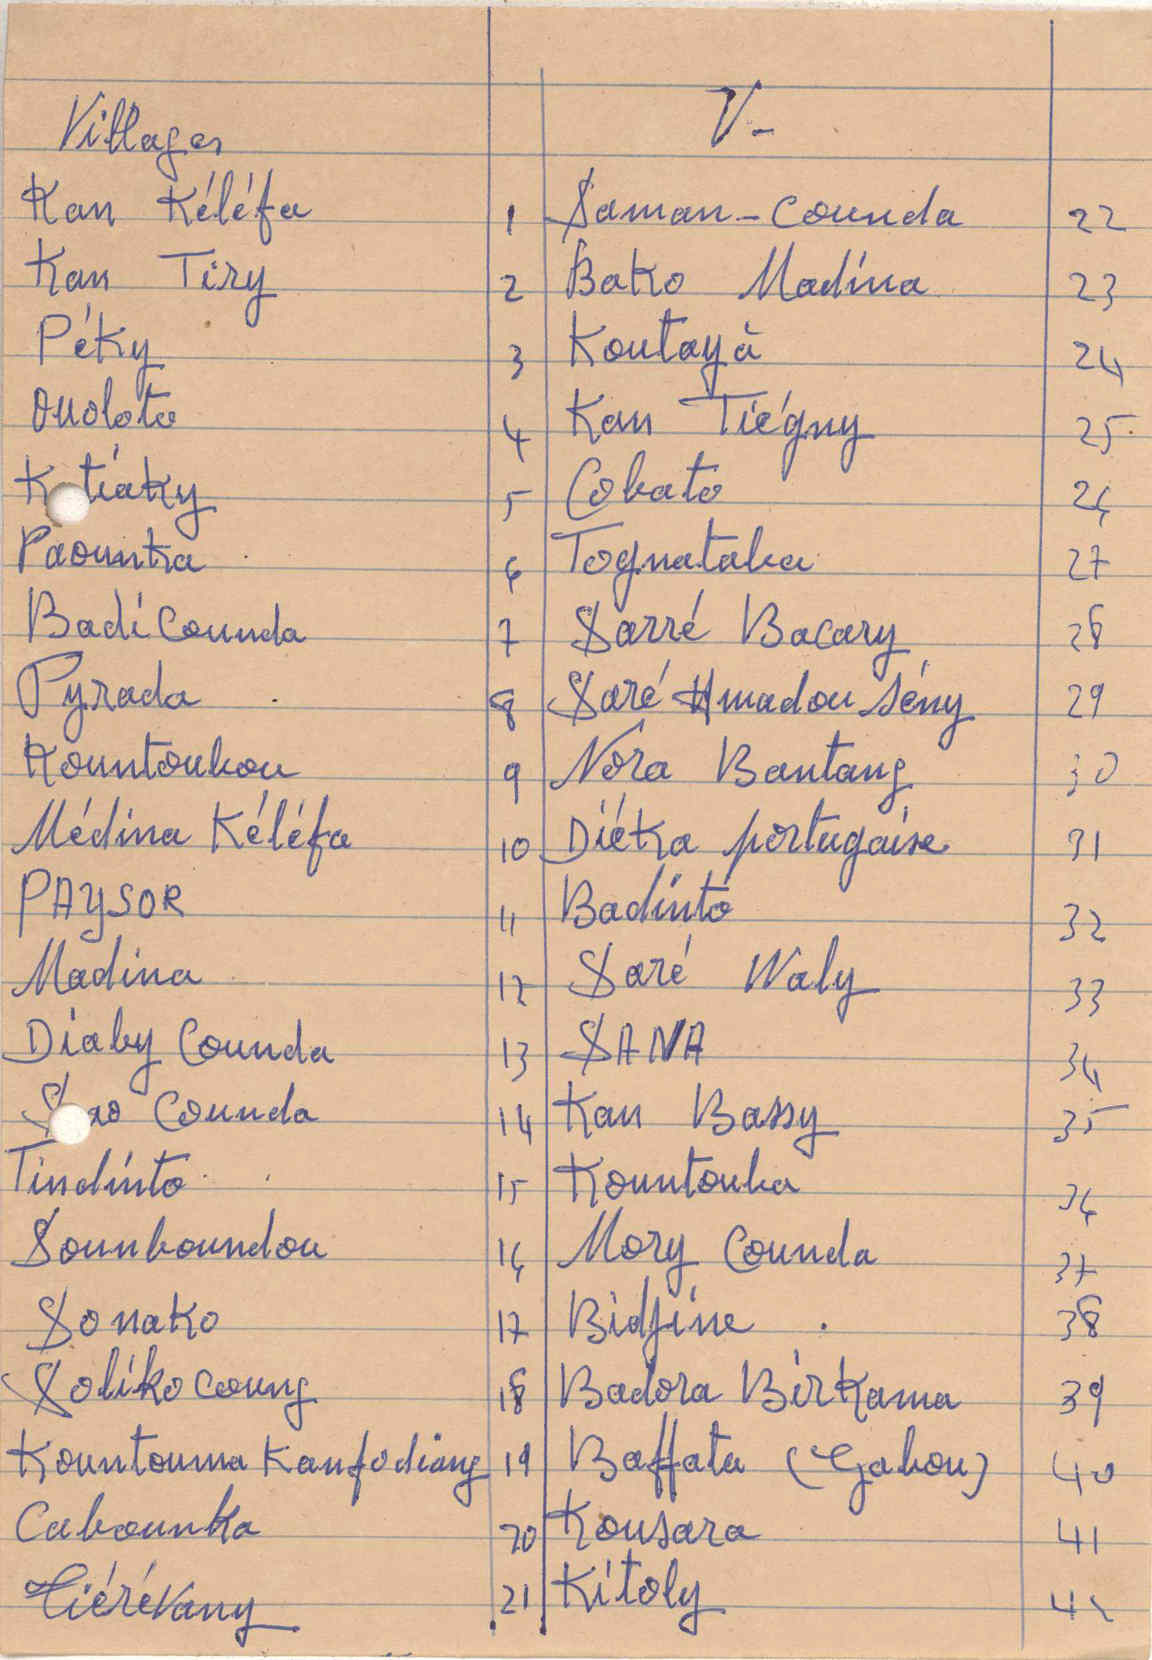 Villages
Kan Kéléfa 1
Kan Tiry 2
Péky 3
Ouoloto 4
K tiaky 5
Paountra 6
Badicounda 7
Pyrada 8
Kountoubou 9
Médina Kéléfa 10
PAYSOR 11
Madina 12
Diaby Counda 13
Counda 14
Tindinto 15
Sounboundou 16
Sonako 17
Solikocoung 18
Kountouma Kanfodiang 19
Cabounka 20
Tiérévany 21
V-
Saman-Counda 22
Bako Madina 23
Koutayà 24
Kan Tiégny 25
Cobato 26
Tognataba 27
Sarré Bacary 28
Saré Amadou sény 29
Nora Bantang 30
Diéka portugaise 31
Badinto 32
Saré Waly 33
SANA 34
Kan Bassy 35
Kountouba 36
Mory Counda 37
Bidjine 38
Badora Birkama 39
Baffata (Gabou) 40
Kousara 41
Kitoly